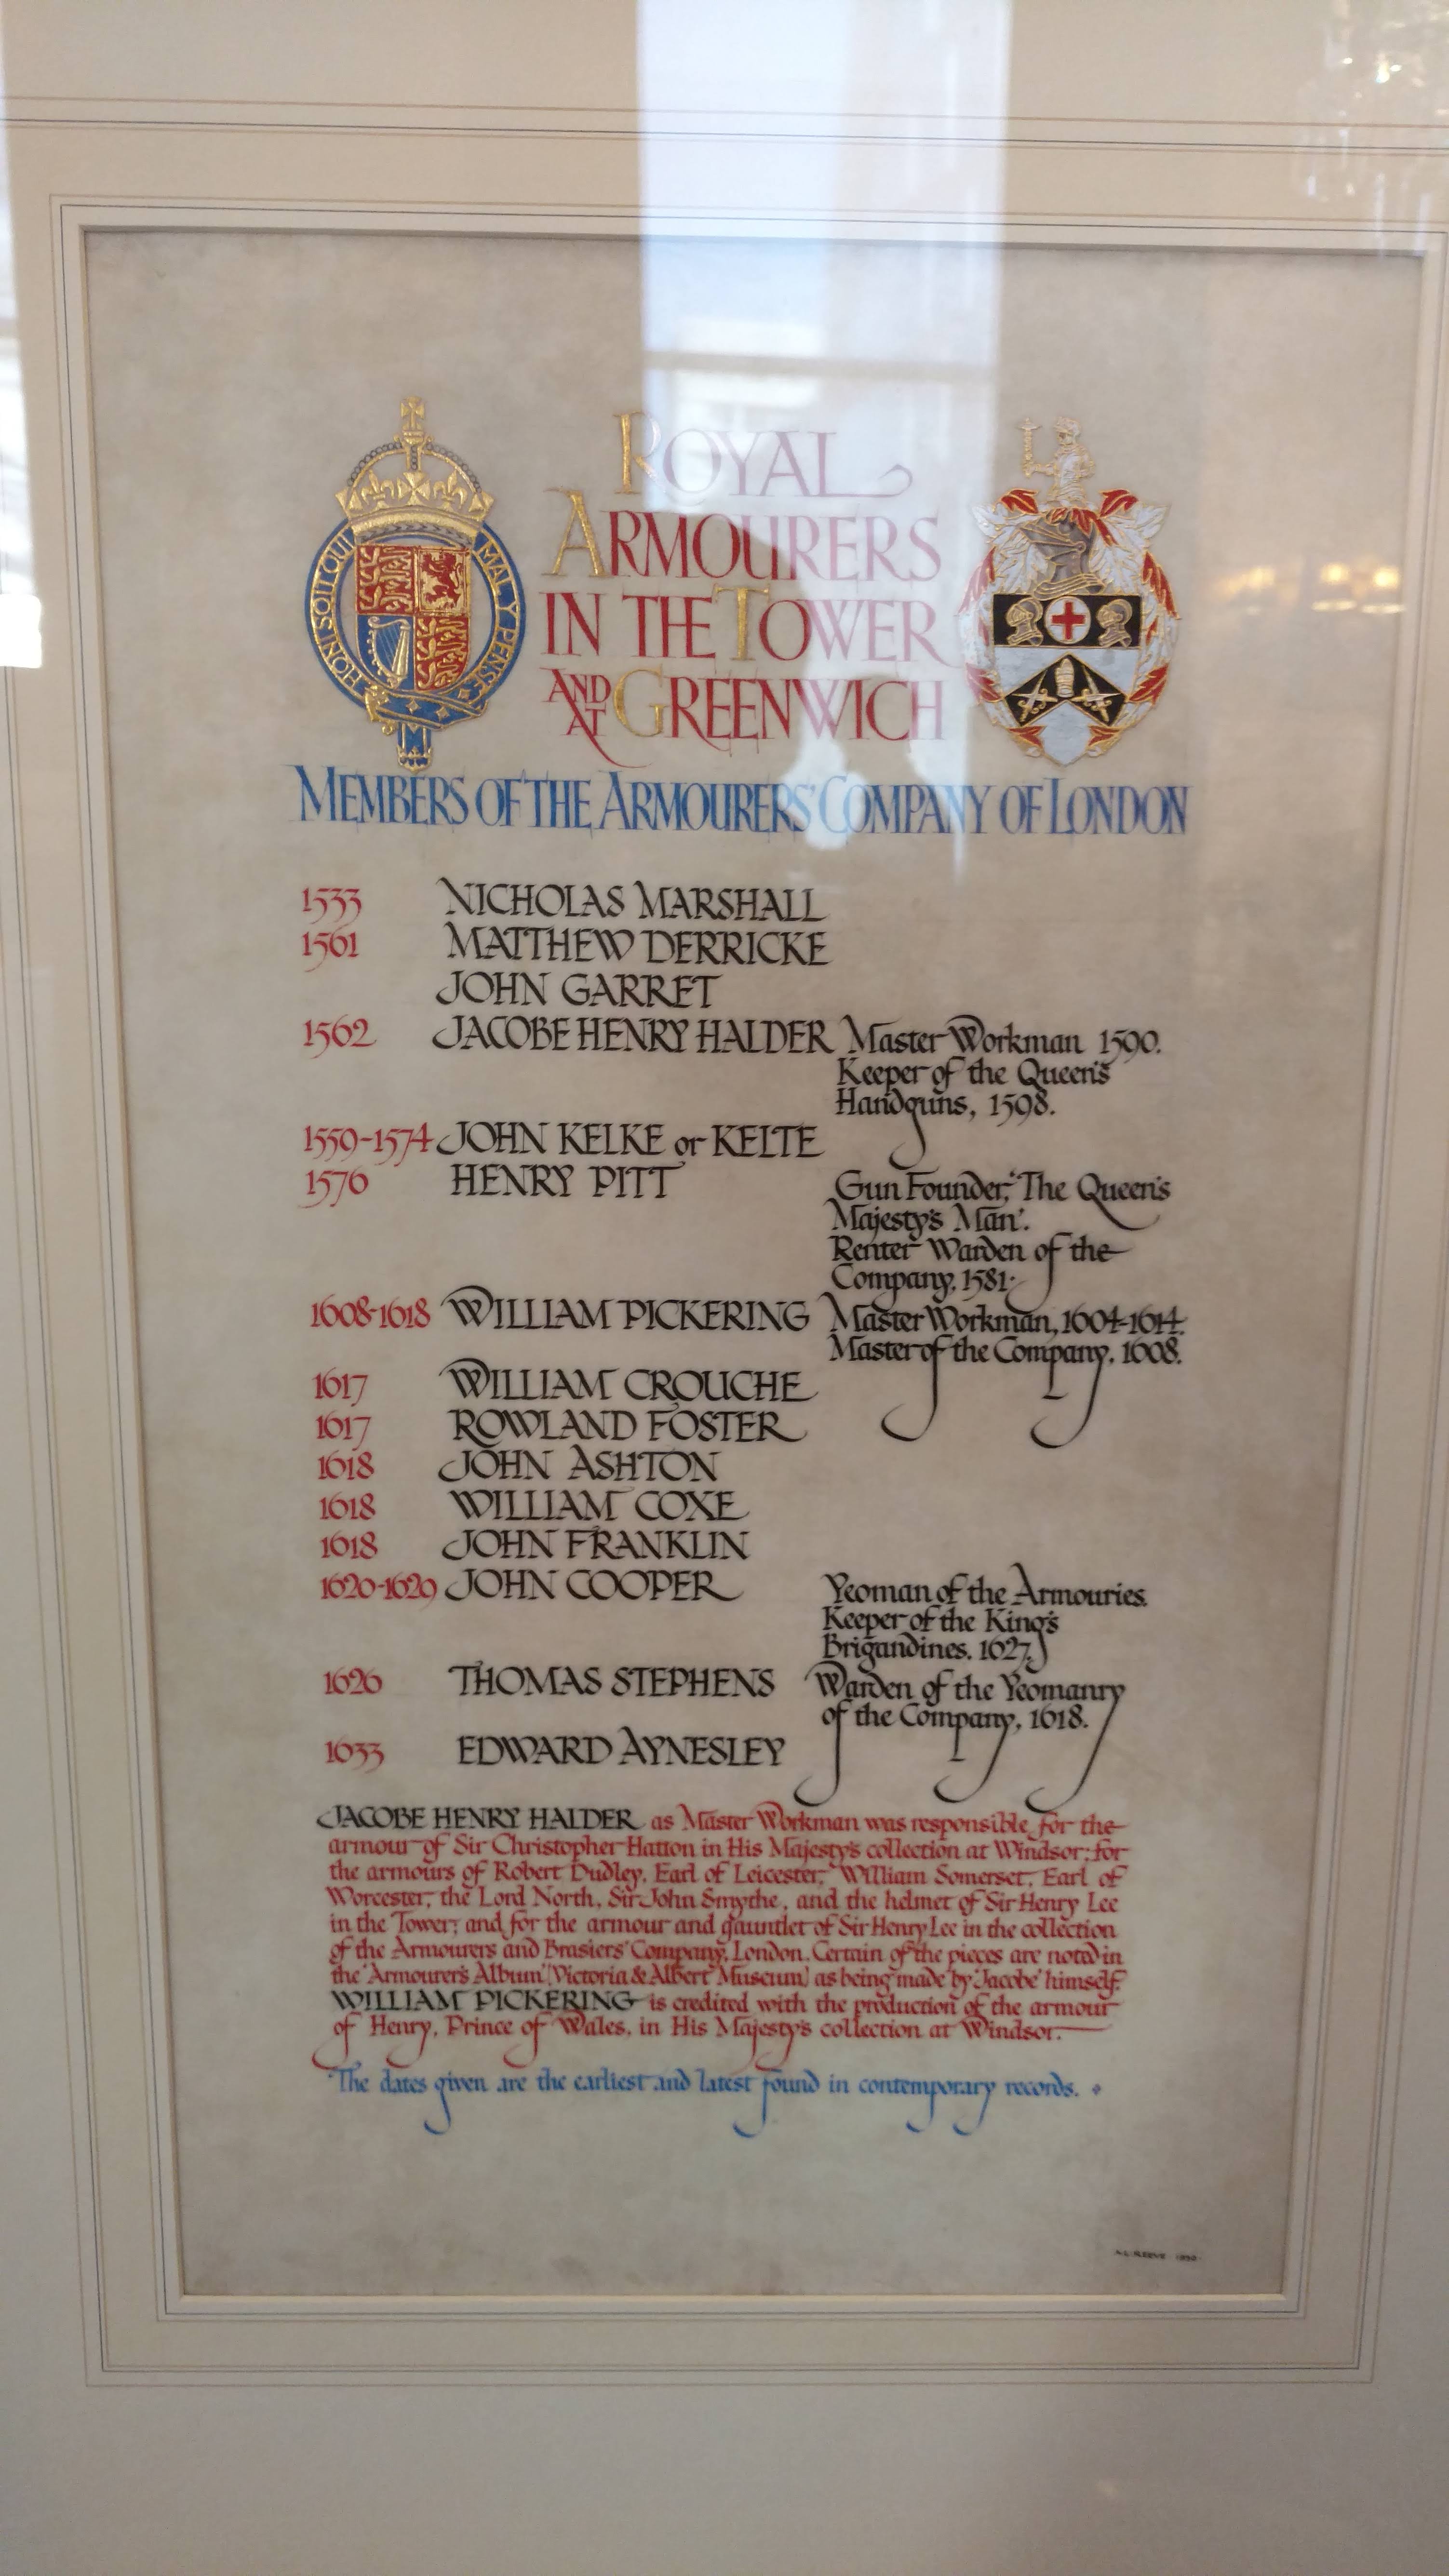 ROYAL
ARMOURERS
IN THE TOWER
AND AT GREENWICH
HONI SOIT QUI MAL Y PENSE
MEMBERS OF THE ARMOURERS' COMPANY OF LONDON
1533 NICHOLAS MARSHALL
1561 MATTHEW DERRICKE
JOHN GARRET
1562 JACOBE HENRY HALDER Master Workman 1590.
Keeper of the Queen's
Handguns, 1598.
1559-1574 JOHN KELKE or KELTE
1576 HENRY PITT Gun Founder, 'The Queen's
Majesty's Man'.
Renter Warden of the
Company, 1581.
1608-1618 WILLIAM PICKERING Master Workman, 1604-1614.
Master of the Company, 1608.
1617 WILLIAM CROUCHE
1617 ROWLAND FOSTER
1618 JOHN ASHTON
1618 WILLIAM COXE
1618 JOHN FRANKLIN
1620-1629 JOHN COOPER Yeoman of the Armouries.
Keeper of the King's
Brigandines. 1627.
1626 THOMAS STEPHENS Warden of the Yeomanry
of the Company, 1618.
1633 EDWARD AYNESLEY
JACOBE HENRY HALDER as Master Workman was responsible for the
armour of Sir Christopher Hatton in His Majesty's collection at Windsor; for
the armours of Robert Dudley, Earl of Leicester, William Somerset, Earl of
Worcester, the Lord North, Sir John Smythe, and the helmet of Sir Henry Lee
in the Tower; and for the armour and gauntlet of Sir Henry Lee in the collection
of the Armourers and Brasiers' Company, London. Certain of the pieces are noted in
the 'Armourer's Album' (Victoria & Albert Museum) as being made by 'Jacobe' himself.
WILLIAM PICKERING is credited with the production of the armour
of Henry, Prince of Wales, in His Majesty's collection at Windsor.
The dates given are the earliest and latest found in contemporary records.